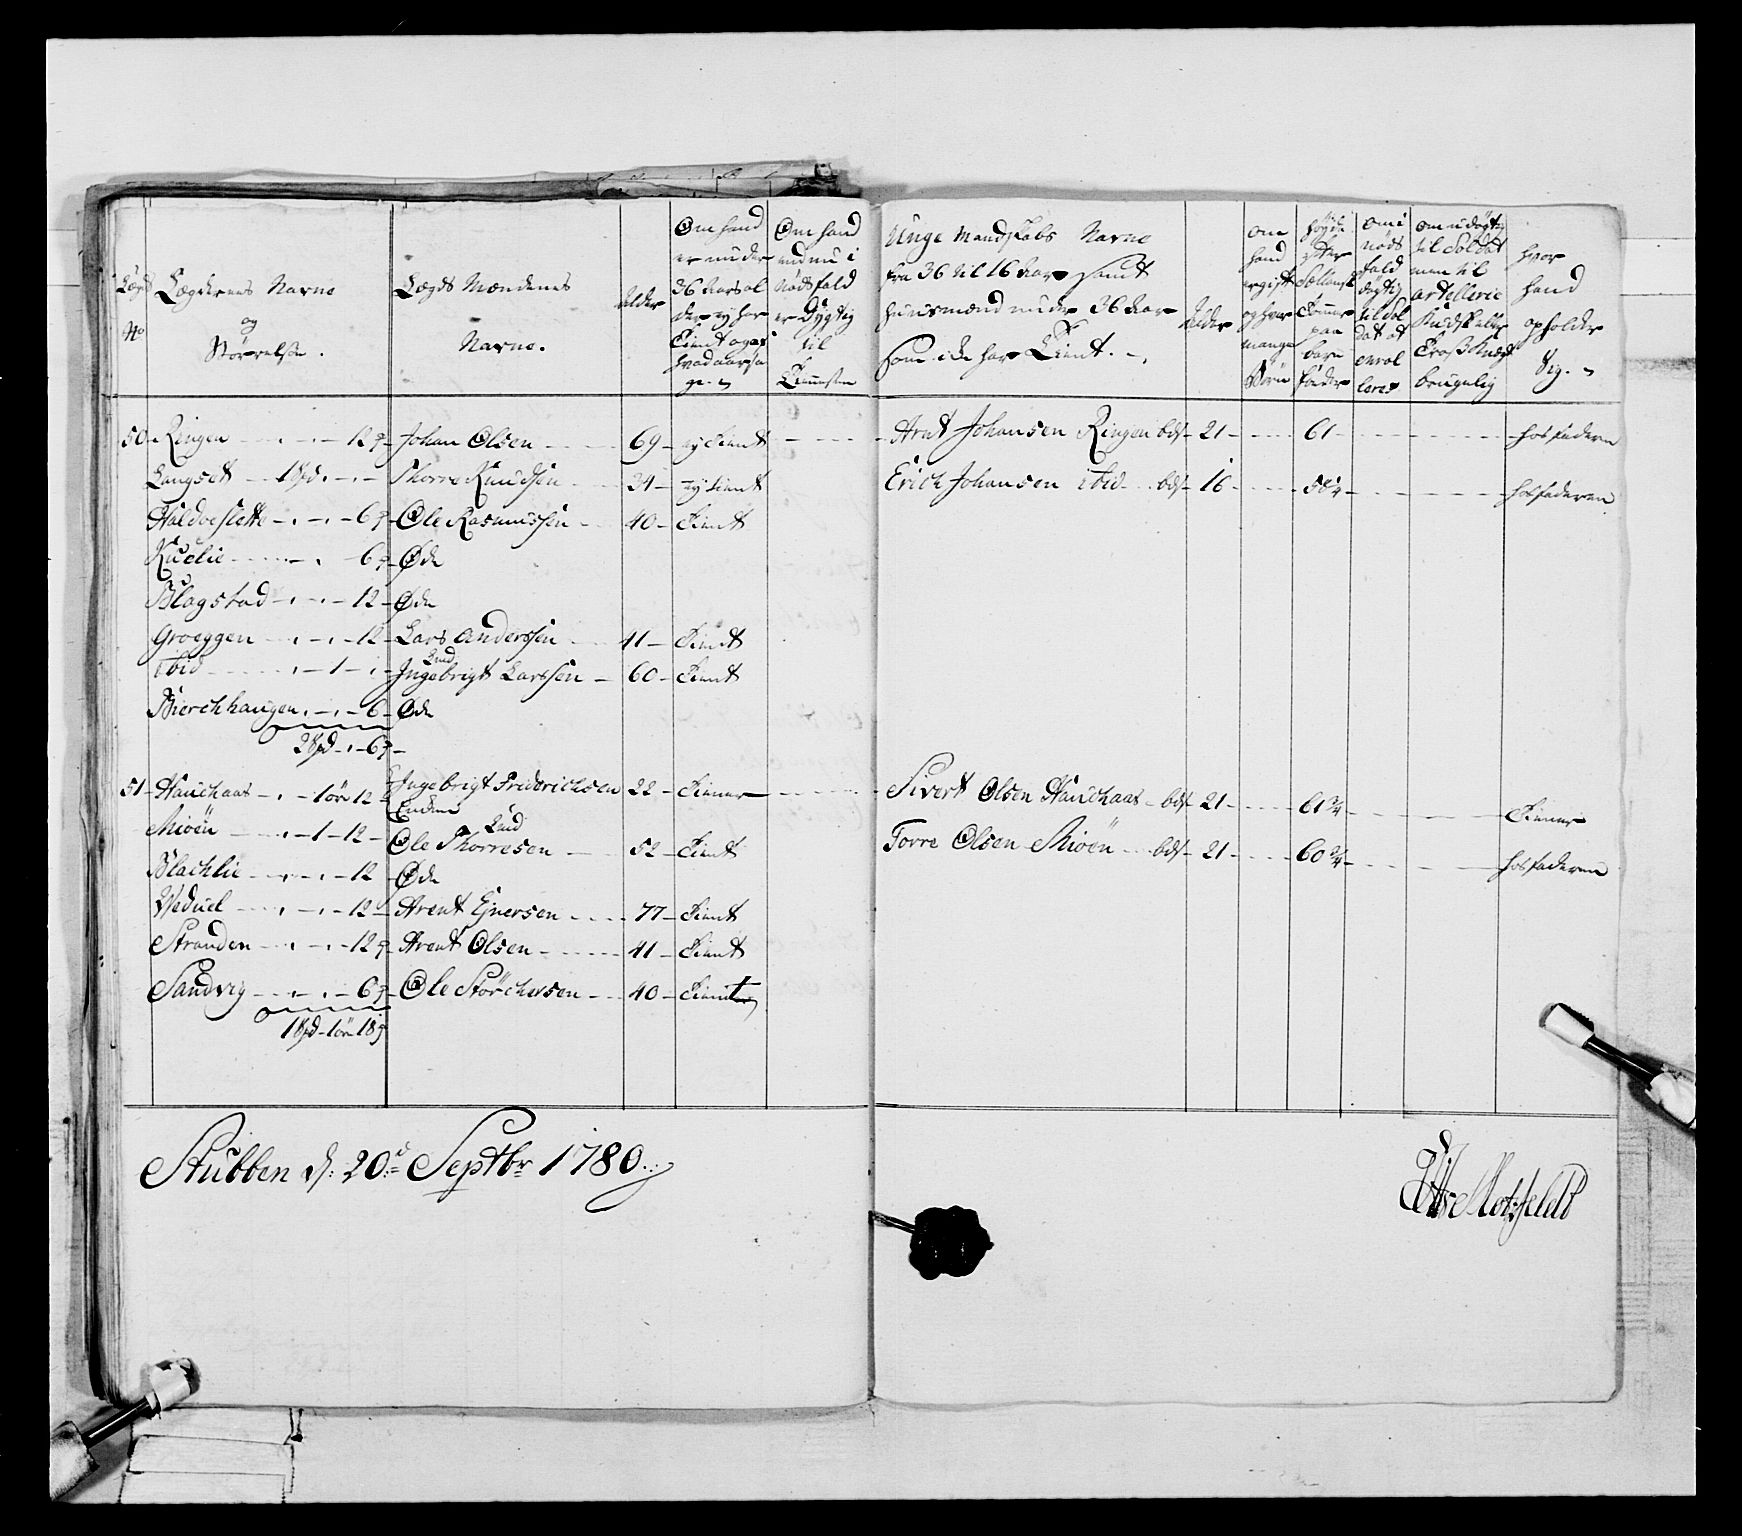 Lægds No
Lægdernes Navne og Størrelse.
Lægds Mændenes Navne.
Alder
Om hand er under 36 Aars al der ej har Tient og af hvad aarsa ge.
Om hand endnu i nødsfald er Dygtig til Tienesten
Unge Mandskabs Navne fra 36 til 16 Aar samt huusmænd under 36 Aar som icke har Tient.
Alder
om hand er gift og hvor mange Børn
høyde efter Sællandsk Tommer paa bare føder
om i nøds fald dygtig til Sol dat at enrol leres
om udøgtig til Soldat men til Artellerie Kudsk eller Tros Knægt brugelig
hvor hand opholder Sig.
50 Ringen 12 Johan Olsen 69 ej tient Arnt Johansen Ringen 21 61 hos faderen
Langset 1 Thorre Knudsen 34 ej tient Erich Johansen ibid 16 58¼ hos faderen
Haldoeslette 6 Ole Rasmussen 40 Tient
Kuelie 6 Øde
Blagstad 12 Øde
Groeggen 12 Lars Anderssen 41 Tient
ibid 1 Ingebrigt Larssen 60 Tient
Bierchhaugen 6 Øde
2 6
51 Hauchaas 1ør 12 Ingebrigt Friderichsen 22 Tiener Sivert Olsen Hauchaas 21 61¾ Tiener
Encken
Mioen 1 12 Ole Thorresen 52 Tient Torre Olsen Mioen 21 60¾ hos faderen
Blachlie 12 Øde
Weduel 12 Arent Ejnersen 77 Tient
Stranden 12 Arent Olsen 41 Tient
Sandvig 6 Ole Størchersen 40 Tient
1 1ør 18
Stubben d: 20de Septbr 1780.
Motzfeldt